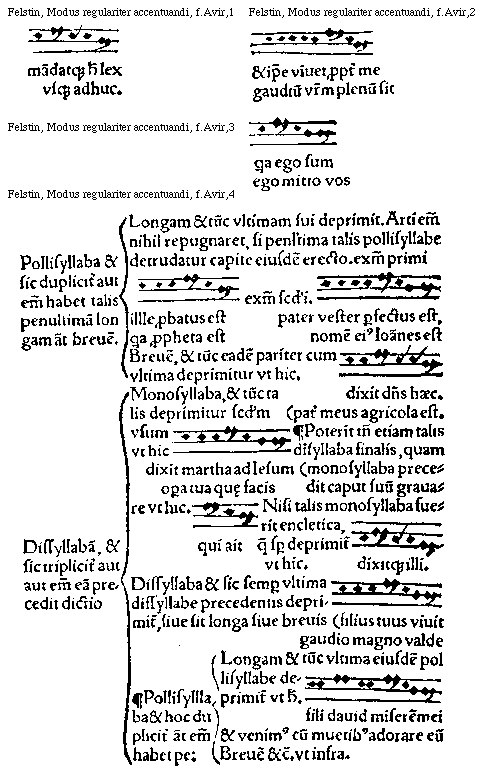 Felstin, Modus regulariter accentuandi, f.Avir,1
Felstin, Modus regulariter accentuandi, f.Avir,2
mādatqꝫ h̄ lex
vſqꝫ adhuc.
&ip̄e viuet,ꝓpt̄ me
gaudiū vr̄m plenū ſit
Felstin, Modus regulariter accentuandi, f.Avir,3
qa ego ſum
ego mitto vos
Felstin, Modus regulariter accentuandi, f.Avir,4
Polliſyllaba &
ſic duplicit̄ aut
em̄ habet talis
penultimā lon
gam āt breuē.
Longam & tūc vltimam ſui deprimit. Artiem̄
nihil repugnaret, ſi penl̄tima talis polliſyllabe
detrudatur capite eiuſdē erecto.exm̄ primi
exm̄ ſcd̓i.
ille,ꝓbatus eſt
qa ,ꝓpheta eſt
pater veſter ꝑfectus eſt,
nomē eiꝰ Ioānes eſt
Breuē, & tūc eadē pariter cum
vltima deprimitur vt hic.
Diſſyllabā, &
ſic triplicit̄ aut
aut em̄ eā pre⸗
cedit dictio
Monoſyllaba,& tūc ta
lis deprimitur ſcd̓m
vſum
vt hic
dixit dn̄s hæc.
(pat̄ meus agricola eſt.
¶Poterit tn̄ etiam talis
diſſyllaba finalis, quam
dixit martha ad Ieſum
opa tua quę facis
(monoſyllaba prece⸗
dit caput ſuū graua⸗
re vt hic.
Niſi talis monoſyllaba fue⸗
rit encletica,
qui ait
q̄ ſꝑ deprimit̄
vt hic.
dixitqꝫ illi.
Diſſyllaba & ſic ſemꝑ vltima
diſſyllabe precedentis depri⸗
mit̄,ſiue ſit longa ſiue breuis
(filius tuus viuit
gaudio magno valde
¶Polliſyllla,
ba & hoc du
plicit̄ āt em̄
habet pe:
Longam & tūc vltima eiuſdē pol
liſyllabe de⸗
primit̄ vt h̄.
fili dauid miſerēmei
& venimꝰ cū muerībꝰ adorare eū
Breuē &c̄. vt infra.